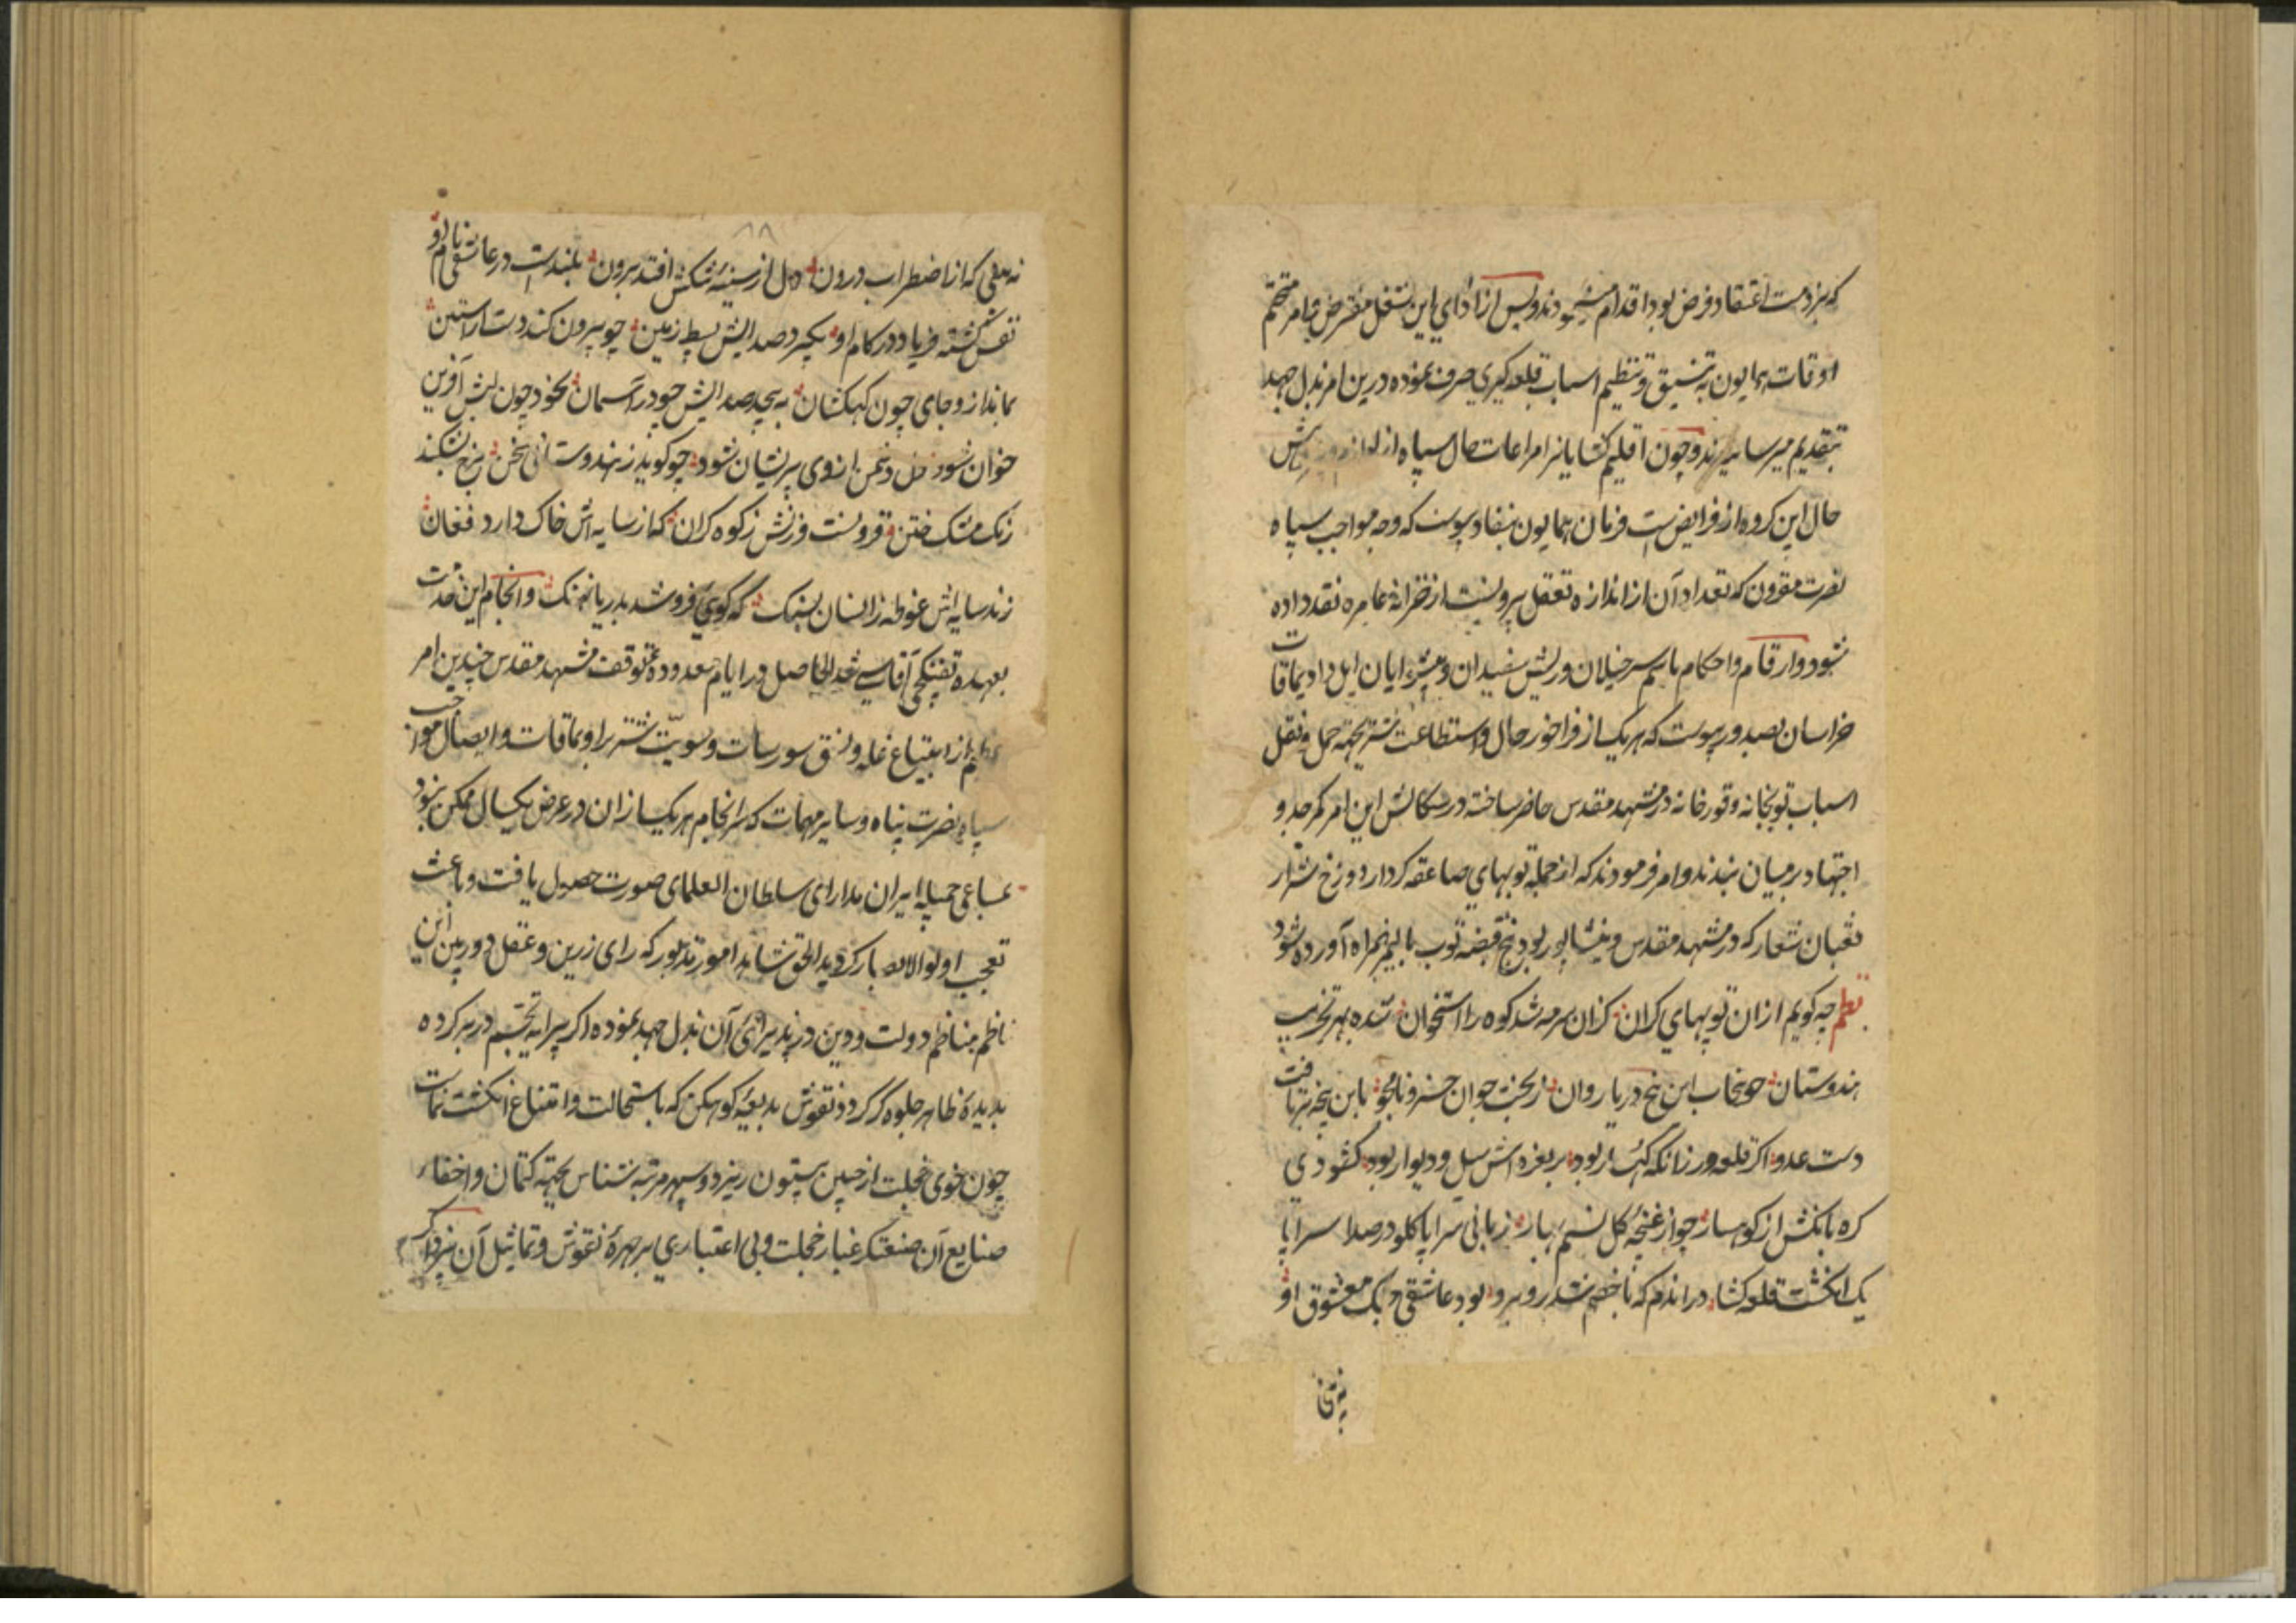 که بر ذمت اعتقاد فرض بود اقدام میفرمودند و پس از ادای این شغل مفترض و امر متحتم
اوقات همایون به تنسیق و تنظیم اسباب قلعه کیری صرف نموده درین امر بذل جهد
بتقدیم میرسانیدند و چون اقلیم کشایانرا مراعات حال سپاه از لوازم
حال این کروه از فرایض است فرمان همایون بنفاذ پیوست که وجه مواجب سپاه
نصرت مقرون که تعداد آن از اندازه تعقل بیرونست از خزانه عامره نقد داده
شود و ارقام و احکام باسم سرخیلان و ریش سفیدان و ایل و اویماقات
خراسان بصدور پیوست که هر یک از فراخور حال و استطاعت شتر بجهة حمل و نقل
اسباب توپخانه و قورخانه در مشهد مقدس حاضر ساخته در سکالش این امر کمر جد و
اجتهاد بر میان بندند و امر فرمودند که از جمله توپهای صاعقه کردار دوزخ شرار
ثعبان شعار که در مشهد مقدس و نیشابور بود پنج قبضه توپ بالیمز همراه آورده شود
نظم چه کویم از ان توپهای کران کزان سرمه شد کوه را استخوان شده بهر تخریب
هندوستان چو پنجاب این پنج دریا روان ز بخت جوان خسرو نامجو باین پنجه برتافت
دست عدو اکر قلعه ور زانکه کهسار بود بر لغزه اش سیل و دیوار بود کشودی
کره بانکش از کوهسار چو از غنچه کل نسیم بهار زبانی سراپا کلو در صدا سراپا
یک انکشت قلعه کشا در اندم که با خصم شد روبرو بود عاشقی جنک معشوق او
نه عشقی که از اضطراب درون دل از سینه تنکش افتد برون بلندست در عاشقی نام او
نفس کشته فریاد در کام او بکیرد صدایش بسیط زمین چو بیرون کند دست از آستین
نماند از و جای چون کهکشان به پیچد صدایش چو در آسمان بخود چون لبش آفرین
خوان شود دل دشمن از وی پریشان شود چو کوید ز هندوستانی سخن بزنغ شکند
رنک مشک ختن فزونست وزنش ز کوه کران که از سایه اش خاک دارد فغان
زند سایه اش غوطه زانسان بسنک که کوئی فروشد بدریا نهنک و انجام این خدمت
بعهده تفنکچی آقاسی شد الحاصل در ایام معدوده توقف مشهد مقدس چندین امر
عظیم از ابتیاع غله و نسق سورسات و تسویت شتر براویماقات و ایصال مواجب
سپاه نصرت پناه و سایر مهمات که سرانجام هر یک از ان در عرض یکسال ممکن نبود
بمساعی جمیله ایران مدارای سلطان العلمای صورت حصول یافت و باعث
تعجب اولوالابصار کردید الحق شاهد امور مزبور که رای زرین و عقل دوربین این
ناظم مناظم دولت و دین در پذیرائی آن بذل جهد نموده اکر پیرایه تجسم در بر کرده
بدیده ظاهر جلوه کر کردد نقوش بدیعه کوهکن که باستحالت و امتناع انکشت نماست
چون خوی خجلت از جبین بیستون ریزد و سپهر مرتبه شناس بجهة کتمان و اخفاء
صنایع آن صنعتکر غبار خجلت و بی اعتباری بر چهره نقوش و تماثیل آن